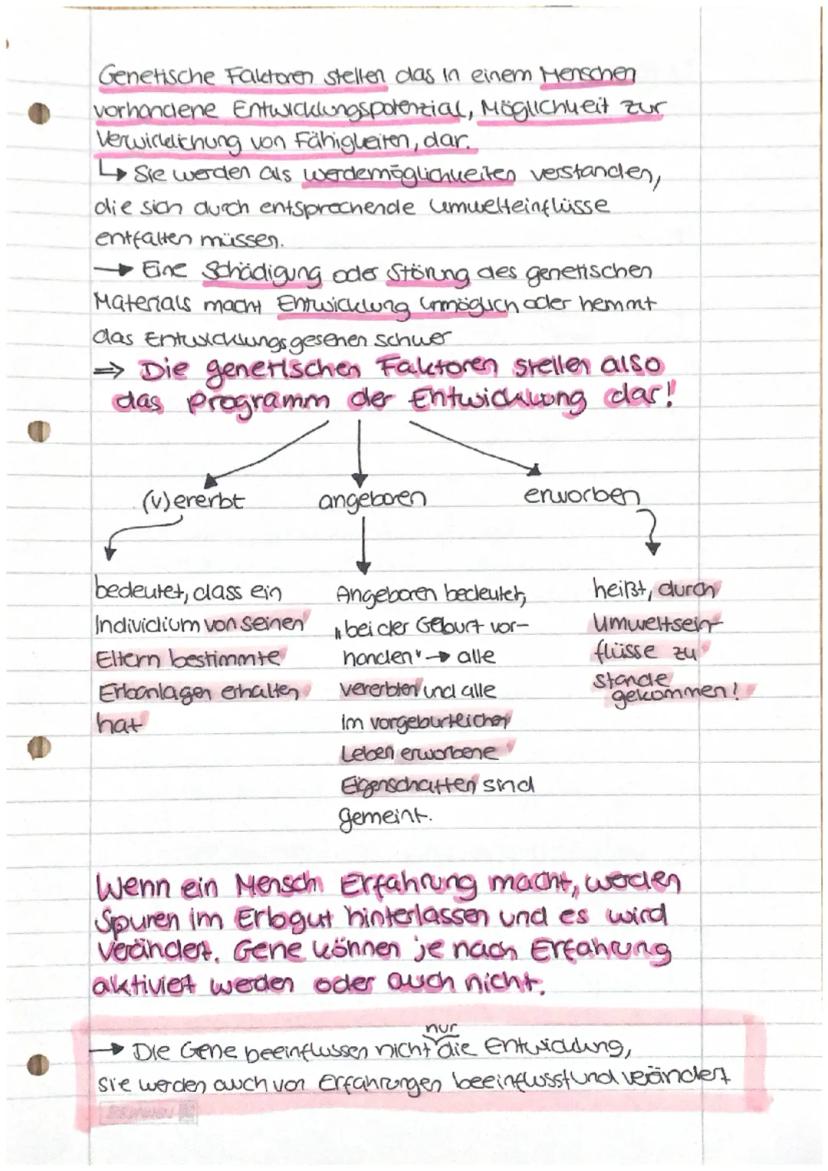 Genetische Faktoren stellen das in einem Menschen
vorhandene Entwicklungspotenzial, Möglichkeit zur
Verwirklichung von Fähigkeiten, dar.
↳ Sie werden als Werdemöglichkeiten verstanden,
die sich durch entsprechende Umwelteinflüsse
entfalten müssen.
→ Eine Schädigung oder Störung des genetischen
Materials macht Entwicklung unmöglich oder hemmt
das Entwicklungsgesehen schwer
⇒ Die genetischen Faktoren stellen also
das Programm der Entwicklung dar!
(v)ererbt angeboren erworben
bedeutet, dass ein
Individium von seinen
Eltern bestimmte
Erbanlagen erhalten
hat
Angeboren bedeutet,
„bei der Geburt vor-
handen" → alle
vererbten und alle
im vorgeburtlichen
Leben erworbene
Eigenschaften sind
gemeint.
heißt, durch
Umweltsein-
flüsse zu
stande
gekommen!
Wenn ein Mensch Erfahrung macht, werden
Spuren im Erbgut hinterlassen und es wird
verändert. Gene können je nach Erfahrung
aktiviert werden oder auch nicht.
→ Die Gene beeinflussen nicht nur die Entwicklung,
sie werden auch von Erfahrungen beeinflusst und verändert